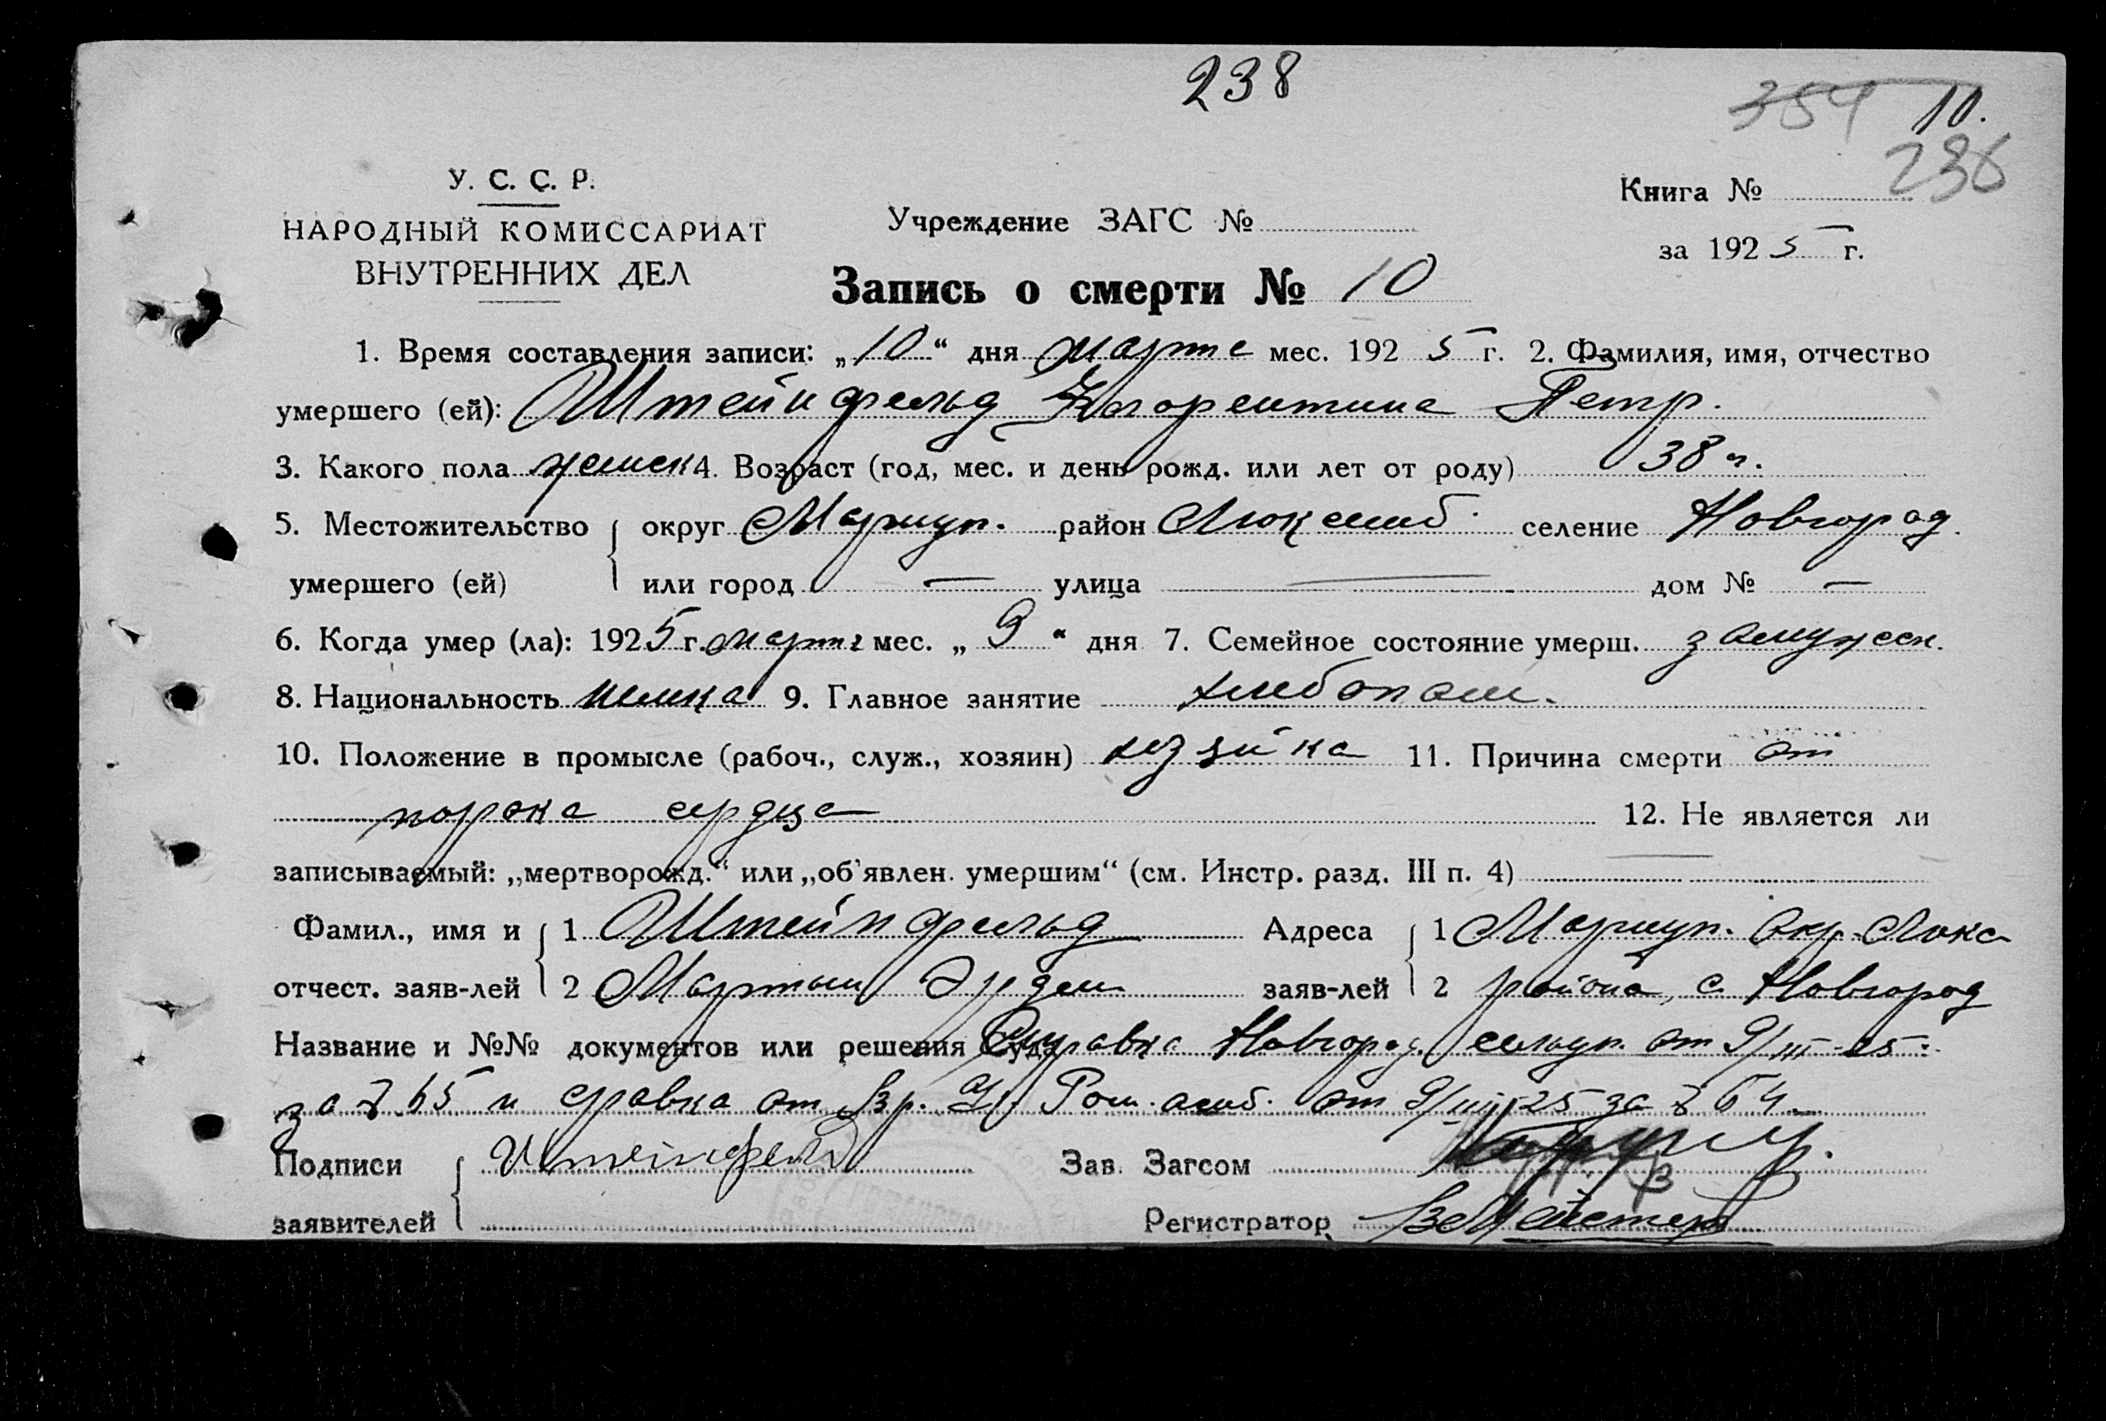 238
354 10.
236
У. С. С. Р.
НАРОДНЫЙ КОМИССАРИАТ
ВНУТРЕННИХ ДЕЛ
Учреждение ЗАГС №
Книга №
за 1925 г.
Запись о смерти № 10
1. Время составления записи: „10“ дня марта мес. 1925 г. 2. Фамилия, имя, отчество
умершего (ей): Штейнфельд Флорентина Петр.
3. Какого пола женск 4. Возраст (год, мес. и день рожд. или лет от роду) 38 л.
5. Местожительство округ Мариуп. район Люксемб. селение Новгород
умершего (ей) или город — улица — дом № —
6. Когда умер (ла): 1925 г. марта мес. „9“ дня 7. Семейное состояние умерш. замужем.
8. Национальность немка 9. Главное занятие хлебопаш.
10. Положение в промысле (рабоч., служ., хозяин) хозяйка 11. Причина смерти от
порока сердца 12. Не является ли
записываемый: „мертворожд.“ или „об'явлен. умершим“ (см. Инстр. разд. III п. 4) —
Фамил., имя и 1 Штейнфельд Адреса 1 Мариуп. Окр. Люкс
отчест. заяв-лей 2 Мартын заяв-лей 2 района, с. Новгород
Название и №№ документов или решения Суда Справка Новгород. сельуп. от 9/III-25.
за № 65 и справка от Вр. от 9/III 25 за № 64
Подписи Штейнфельд Зав. Загсом
заявителей Регистратор